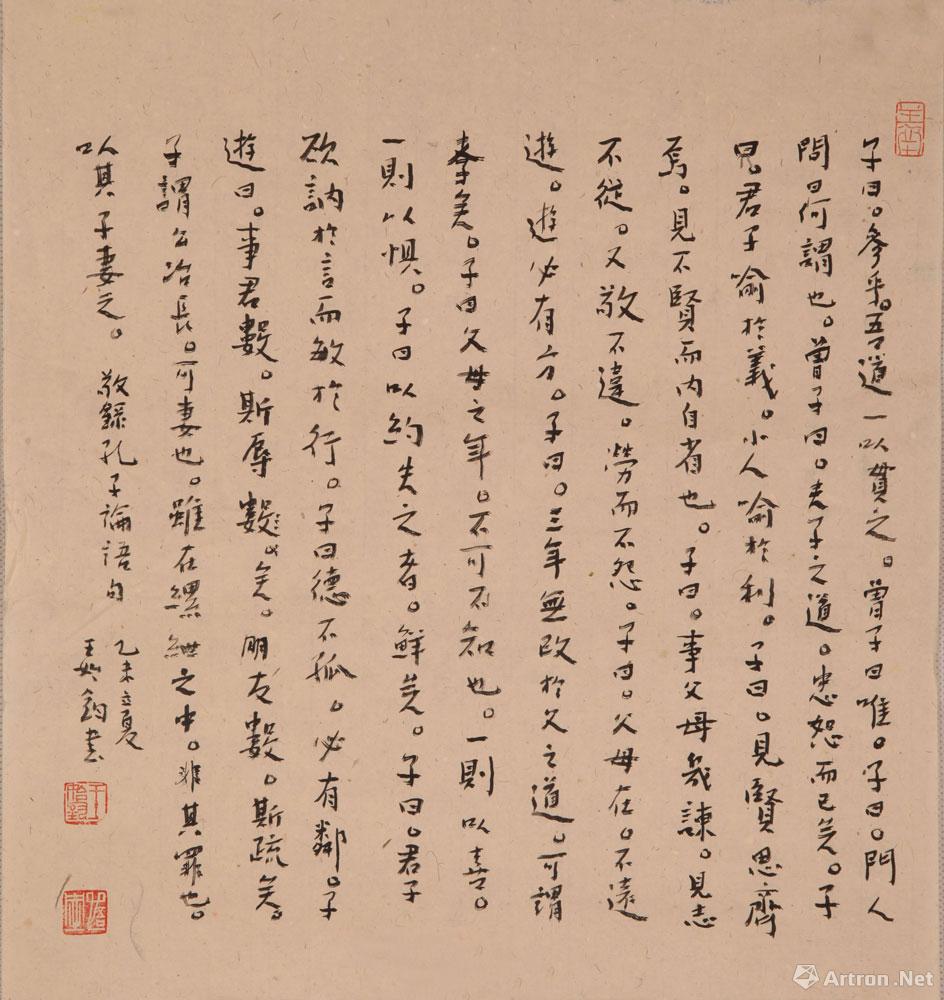 子曰。參乎。吾道一以貫之。曾子曰唯。子曰。門人
問曰何謂也。曾子曰。夫子之道。忠恕而已矣。子
曰。君子喻於義。小人喻於利。子曰。見賢思齊
焉。見不賢而內自省也。子曰。事父母幾諫。見志
不從。又敬不違。勞而不怨。子曰。父母在。不遠
遊。遊必有方。子曰。三年無改於父之道。可謂
孝矣。子曰父母之年。不可不知也。一則以喜。
一則以懼。子曰以約失之者。鮮矣。子曰。君子
欲訥於言而敏於行。子曰德不孤。必有鄰。子
遊曰。事君數。斯辱數。矣。朋友數。斯疏矣。
子謂公冶長。可妻也。雖在縲紲之中。非其罪也。
以其子妻之。 敬錄孔子論語句
乙未立夏
王 鈞書
Artron.Net